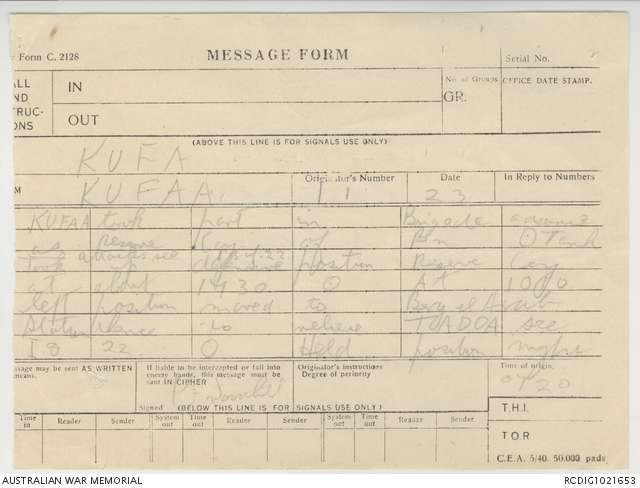 Form C. 2128 MESSAGE FORM Serial No.
ALL
AND
STRUC-
ONS
IN
OUT
No. of Groups
GR.
OFFICE DATE STAMP.
(ABOVE THIS LINE IS FOR SIGNALS USE ONLY)
KUFA
KUFAA
Originator's Number
11
Date
23
In Reply to Numbers
KUFAA took part in Brigade advance
as reserve Coy of Bn O Tank
took up defensive position Reserve Coy
at about 1430 O At 1000
left position moved to Burg el Arab
Station thence to relieve TOADOA see
I.8 22 O Held position night
message may be sent AS WRITTEN
means.
If liable to be intercepted or fall into
enemy hands, this message must be
sent IN CIPHER
Originator's instructions
Degree of priority
Time of origin.
0720
Signed (BELOW THIS LINE IS FOR SIGNALS USE ONLY)
T.H.I.
Time in Reader Sender System out Time out Reader Sender System out Time out Reader Sender
T O R
C.E.A. 5/40. 50.000 pads.
AUSTRALIAN WAR MEMORIAL RCDIG1021653